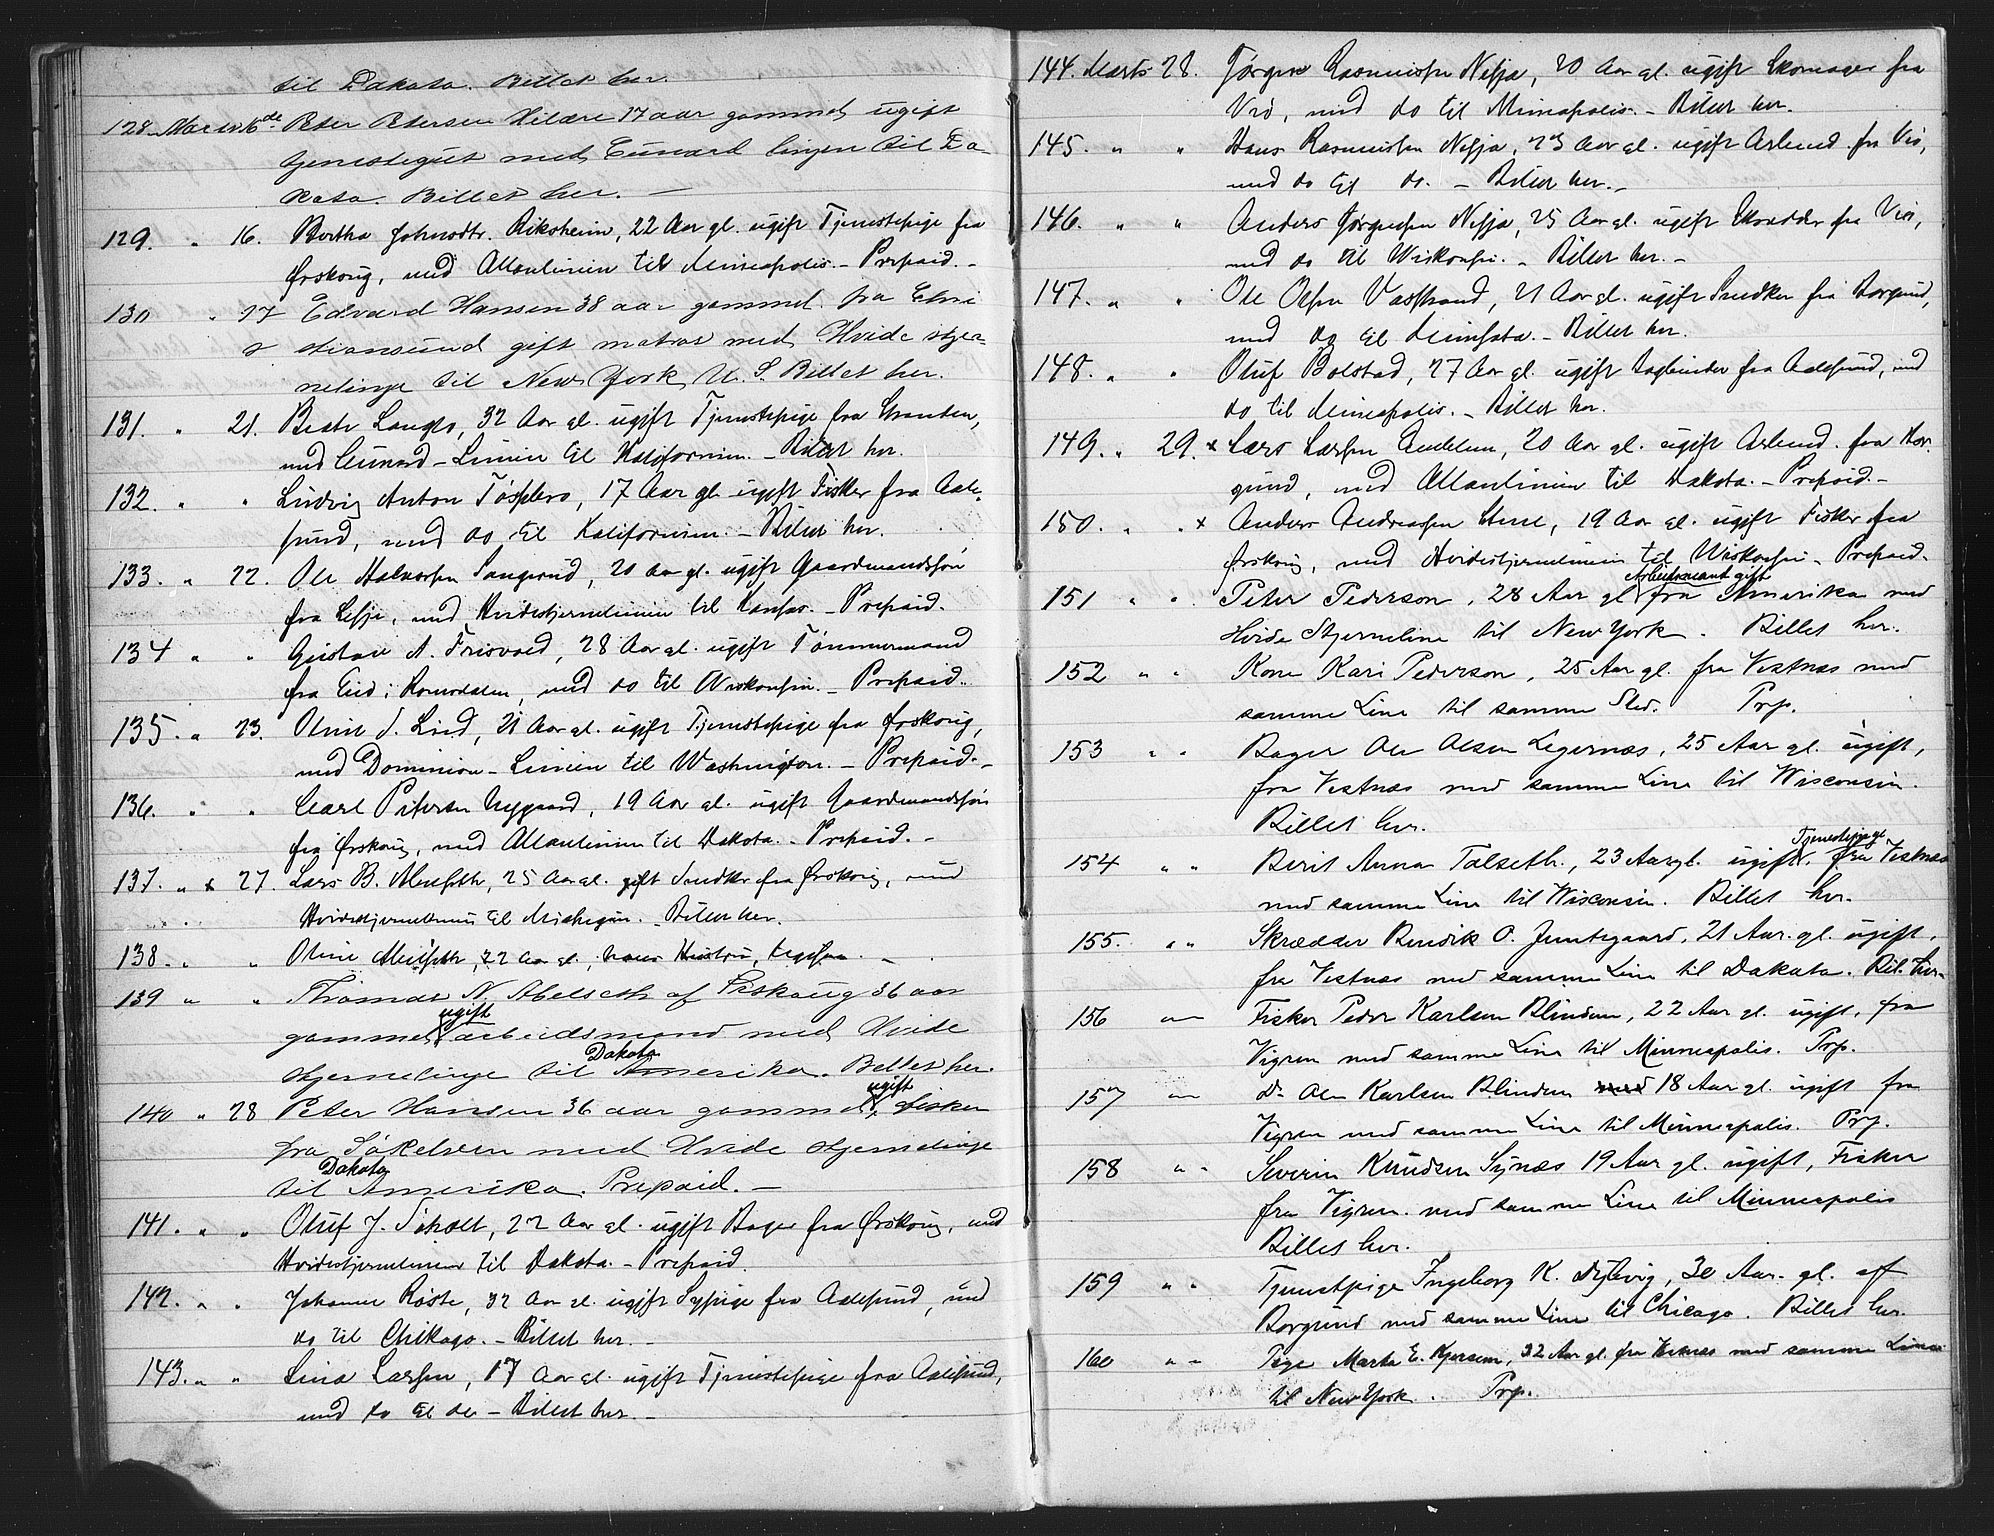 til Dakota. Billet her.
128 Marts 16de Peter Petersen Hilære 17 aar gammel ugift
tjenestegut med Cunard linjen til Da-
kota Billet her. —
129. " 16. Bertha Johnsdtr. Riksheim, 22 Aar gl. ugift Tjenestepige fra
Ørskoug, med Allanlinien til Mineapolis. - Prepaid. -
130 " 17 Edvard Hansen 38 aar gammel fra Chri
stiansund gift matros med Hvide stjer-
nelinje til New York U. S. Billet her.
131. " 21. Beate Langlo, 32 Aar gl. ugift Tjenestepige fra Stranden,
med Cunard-Linien til Kaliformien. - Billet her.
132. " " Ludvig Anton 17 Aar gl. ugift Fisker fra Aale-
sund, med do til Kaliformien. - Billet her.
133. " 22. Ole Halvorsen 20 Aar gl. ugift Gaardmandssøn
fra Lesje, med Hvidestjernelinien til Kansas. - Prepaid.
134 " " Gustav A. Frisvold, 28 Aar gl. ugift Tømmermand
fra Eid i Romsdalen, med do til Wiskonsin. - Prepaid.
135. " 23. Oline S. Lied, 21 Aar gl. ugift Tjenestepige fra Ørskoug,
med Dominion-Linien til Washington. - Prepaid. -
136. " " Carl Petersen Nygaard, 19 Aar gl. ugift Gaardmandssøn
fra Ørskoug, med Allanlinien til Dakota. - Prepaid. -
137. " x 27. Lars B. 25 Aar gl. gift Snedker fra Ørskoug, med
Hvidestjernelinien til Michegan. - Billet her.
138. " " Oline 22 Aar gl., hans Hustru, ligesaa. -
139 " " Thomas N. Abelseth af Ørskoug 36 aar
gammel ugift arbeidsmand med Hvide
stjernelinje til Dakota Amerika. Billet her.
140 " 28 Peter Hansen 36 aar gammel ugift fisker
fra Søkelven med Hvide stjernelinje
til Dakota Amerika. Prepaid. —
141. " " Oluf J. 22 Aar gl. ugift Bager fra Ørskoug, med
Hvidestjernelinien til Dakota. - Prepaid.
142. " " Johanne Røste, 32 Aar gl. ugift Sypige fra Aalesund, med
do til Chikago. - Billet her. -
143. " " Lina Larsen, 17 Aar gl. ugift Tjenestepige fra Aalesund,
med do til do - Billet her. -
144. Marts 28. Jørgen Rasmussen Nesja, 20 Aar gl. ugift Skomager fra
Vio, med do til Mineapolis. - Billet her.
145. " " Hans Rasmussen Nesja, 23 Aar gl. ugift Arbmd. fra Vio,
med do til do. - Billet her. -
146. " " Anders Jørgensen Nesja, 25 Aar gl. ugift Skrædder fra Vio,
med do til Wiskonsin. - Billet her. -
147. " " Ole Olsen Vasstrand, 21 Aar gl. ugift Snedker fra Borgund,
med do til Minnesota. - Billet her.
148. " " Oluf Bolstad, 27 Aar gl. ugift Bogbinder fra Aalesund, med
do til Mineapolis. - Billet her.
149. " 29. x Lars Larsen 20 Aar gl. ugift Arbmd. fra Bor-
gund, med Allanlinien til Dakota. - Prepaid. -
150. " " x Anders Andreassen Stene, 19 Aar gl. ugift Fisker fra
Ørskoug, med Hvidestjernelinien til Wiskonsin - Prepaid.
151 " " Peter Pederson, 28 Aar gl Arbeidsmand gift fra Amerika med
Hvide Stjerneline til New York. Billet her.
152 " " Kone Kari Pederson, 25 Aar gl. fra Vestnæs med
samme Line til samme Sted. Prp.
153 " " Bager Ole Olsen Legernæs, 25 Aar gl. ugift,
fra Vestnæs med samme Line til Wisconsin.
Billet her.
154 " " Berit Anna Talseth, 23 Aar gl. ugift, Tjenestepige fra Vestnæs
med samme Line til Wisconsin. Billet her.
155. " " Skrædder Bendik O. 21 Aar. gl. ugift,
fra Vestnæs med samme Line til Dakota. Bil. her.
156 " " Fisker Peder Karlsen Blindem, 22 Aar gl. ugift, fra
Vigren med samme Line til Minneapolis. Prp.
157 " " Do Ole Karlsen Blindem med 18 Aar gl. ugift fra
Vigren med samme Line til Minneapolis. Prp.
158 " " Severin Knudsen Synæs 19 Aar gl. ugift, Fisker
fra Vigren. med samme Line til Minneapolis
Billet her.
159 " " Tjenestpige Ingeborg K. Dybvig, 30 Aar. gl. af
Borgund med samme Line til Chicago. Billet her.
160 " " Pige Marte E. Kjersem, 32 Aar gl. fra Vestnæs med samme Linie
til New York. Prp.